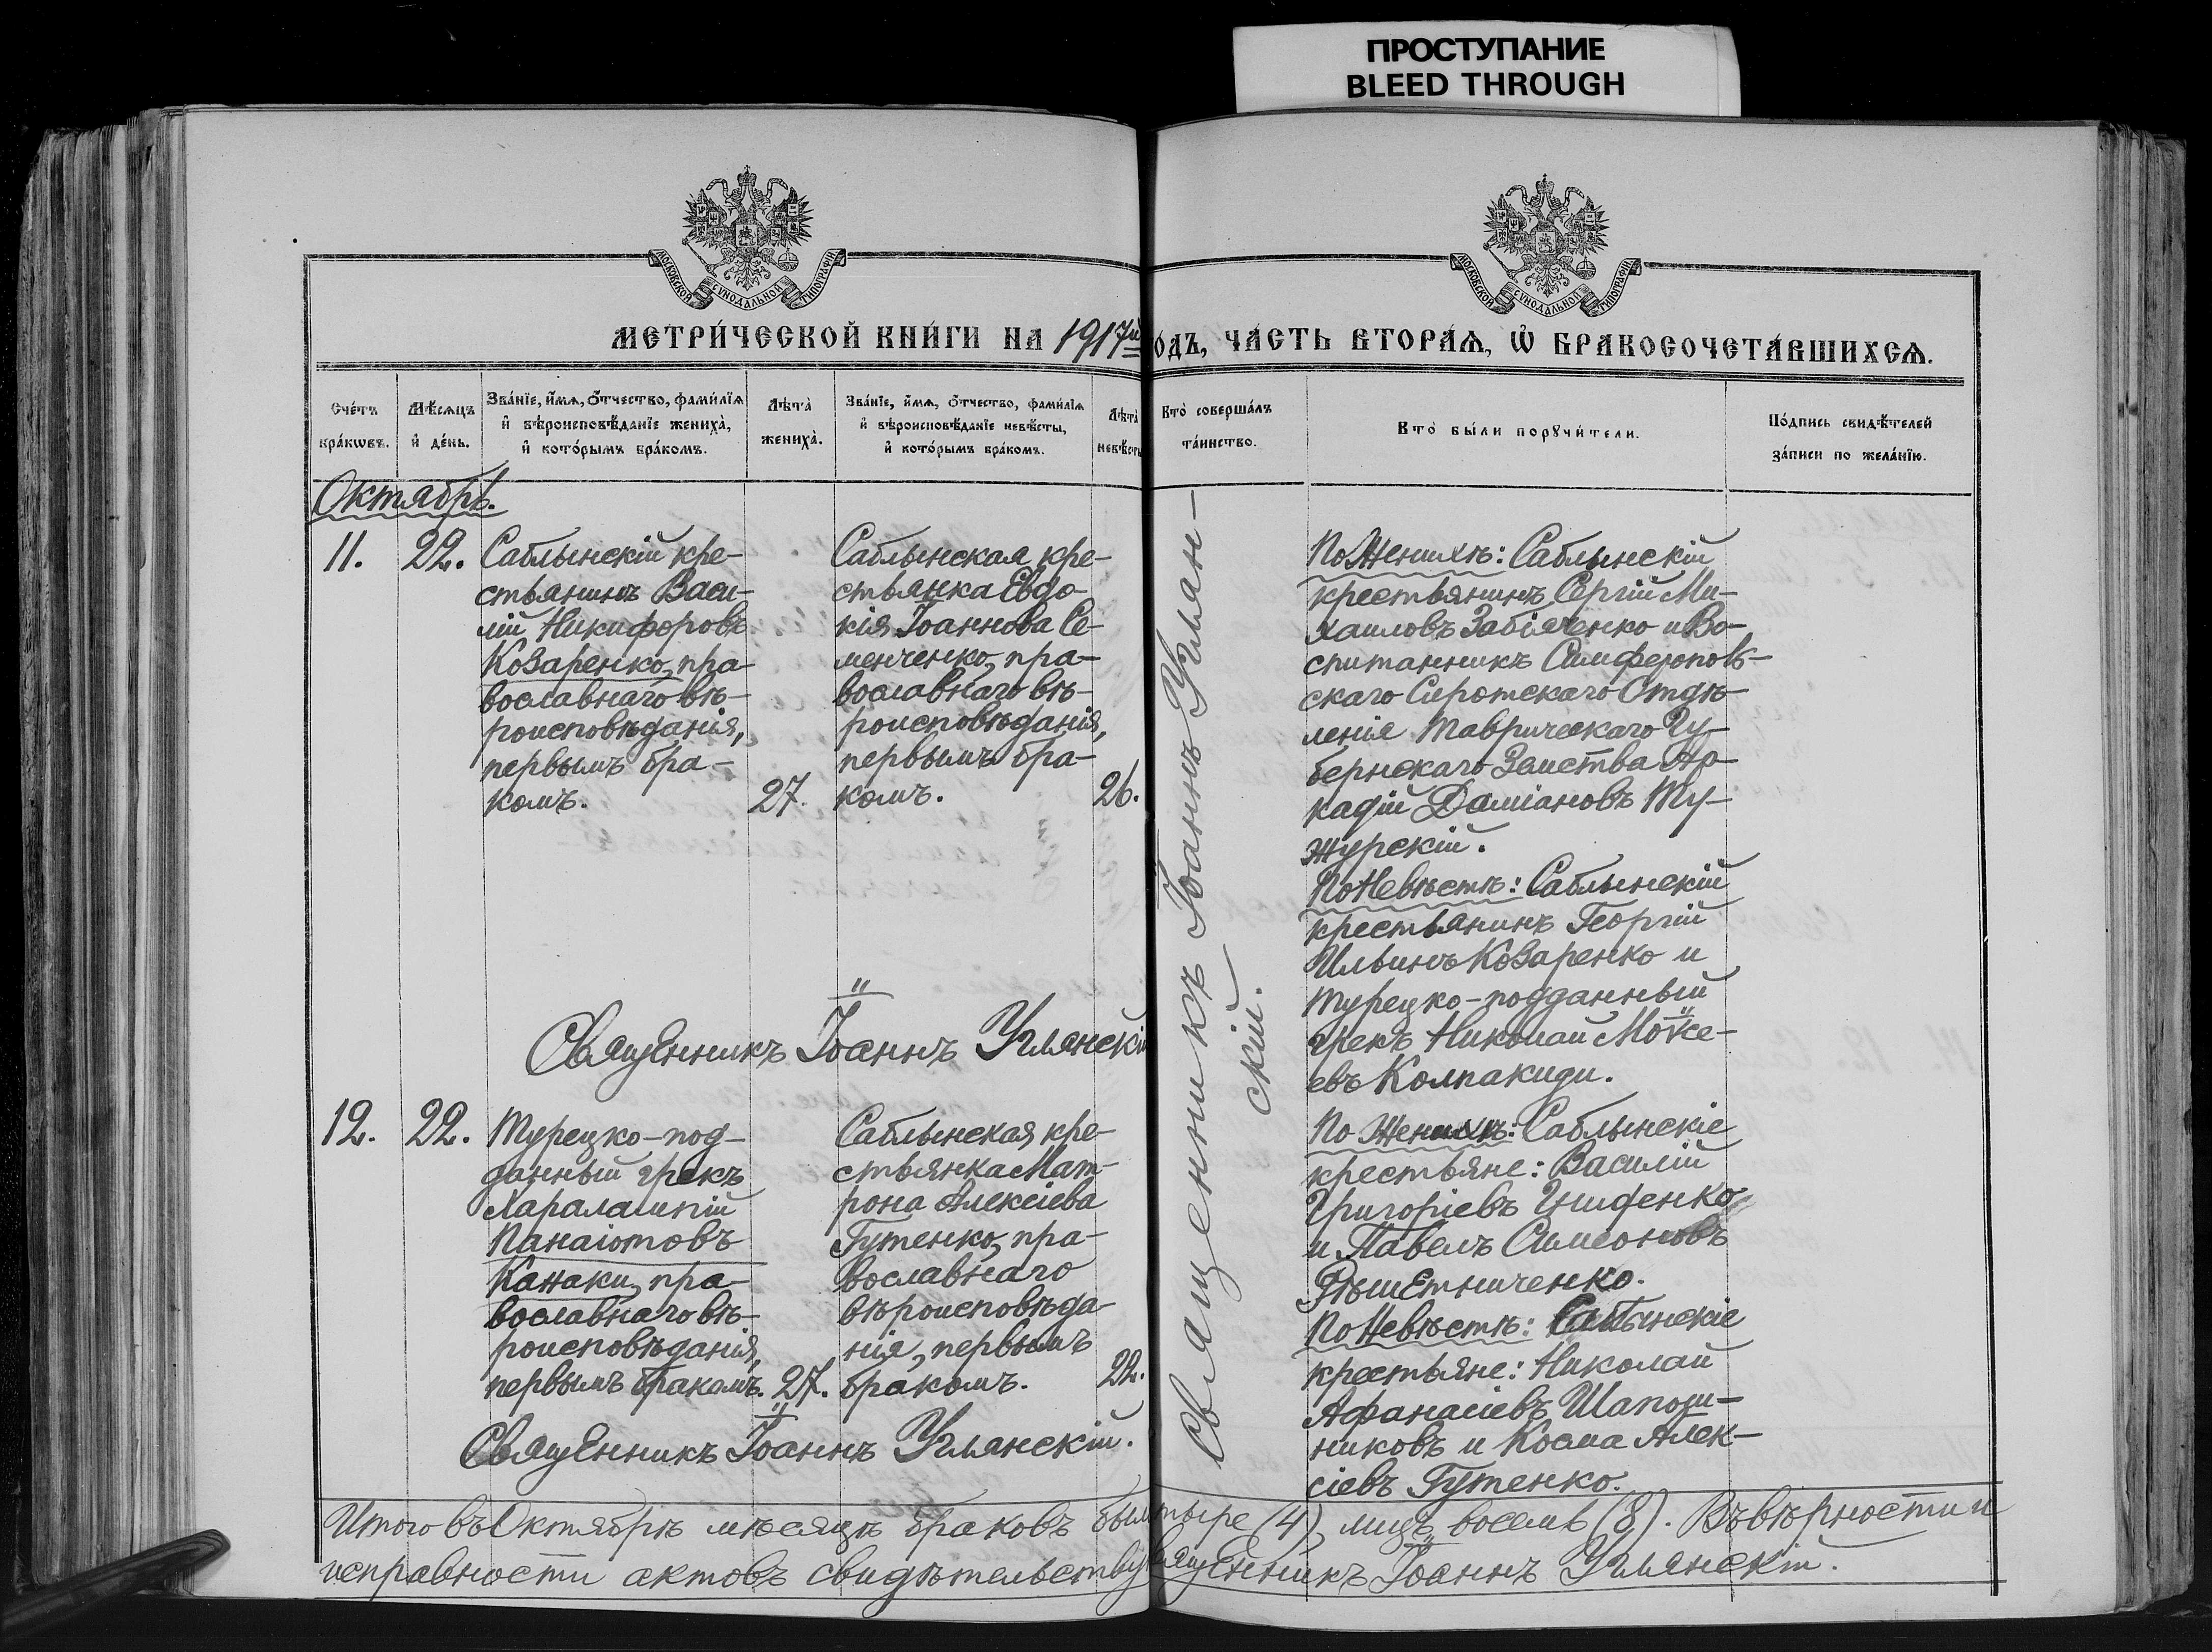 ПРОСТУПАНИЕ
BLEED THROUGH
МОСКОВСКОЙ СУНОДАЛЬНОЙ ТИПОГРАФІИ
МОСКОВСКОЙ СУНОДАЛЬНОЙ ТИПОГРАФІИ
МЕТРИ́ЧЕСКОЙ КНИ́ГИ НА 1917й
ОДЪ, ЧА́СТЬ ВТОРА́Ѧ, Ѡ҆ БРАКОСОЧЕТА́ВШИХСѦ.
Сче́тъ
бра́кѡвъ.
Мѣ́сѧцъ
и҆ де́нь.
Зва́нїе, и҆́мѧ, ѻ҆́тчество, фами́лїѧ
и҆ вѣроисповѣ́данїе жениха̀,
и҆ кото́рымъ бра́комъ.
Лѣ̑та̀
жениха̀.
Зва́нїе, и҆́мѧ, ѻ҆́тчество, фами́лїѧ
и҆ вѣроисповѣ́данїе невѣ́сты,
и҆ кото́рымъ бра́комъ.
Лѣ̑та̀
невѣ́сты
Кто̀ соверша́лъ
та́инство.
Кто̀ бы́ли порꙋчи́тели.
По́дпись свидѣ́телей
за́писи по жела́нїю.
Октябрь.
11.
22.
Саблынскій кре-
стьянинъ Васи-
лій Никифоровъ
Козаренко, пра-
вославнаго вѣ-
роисповѣданія,
первымъ бра-
комъ.
27.
Саблынская кре-
стьянка Евдо-
кія Іоаннова Се-
менченко, пра-
вославнаго вѣ-
роисповѣданія,
первымъ бра-
комъ.
26.
Священникъ Іоаннъ Углянскій
Священникъ Іоаннъ Углян-
скій.
По Женихѣ: Саблынскій
крестьянинъ Сергій Ми-
хаиловъ Забіяченко и Во-
спитанникъ Симферополь-
скаго Сиротскаго Отдѣ-
ленія Таврическаго Гу-
бернскаго Земства Ар-
кадій Даміановъ Ту-
журскій.
По Невѣстѣ: Саблынскій
крестьянинъ Георгій
Ильинъ Козаренко и
турецко-подданный
грекъ Николай Моѵсе-
евъ Колпакиди.
12.
22.
Турецко-под-
данный грекъ
Харалампій
Панаіотовъ
Канаки, пра-
вославнаго вѣ-
роисповѣданія,
первымъ бракомъ.
27.
Саблынская кре-
стьянка Мат-
рона Алексіева
Гутенко, пра-
вославнаго
вѣроисповѣда-
нія, первымъ
бракомъ.
22.
Священникъ Іоаннъ Углянскій.
По Женихѣ: Саблынскіе
крестьяне: Василій
Григоріевъ
и Павелъ Симеоновъ
Рѣшетниченко.
По Невѣстѣ: Саблынскіе
крестьяне: Николай
Афанасіевъ Шапош-
никовъ и Косма Алек-
сіевъ Гутенко.
Итого въ Октябрѣ мѣсяцѣ браковъ было четыре (4), лицъ восемь (8). Въ вѣрности и
исправности актовъ свидѣтельствую Священникъ Іоаннъ Углянскій.